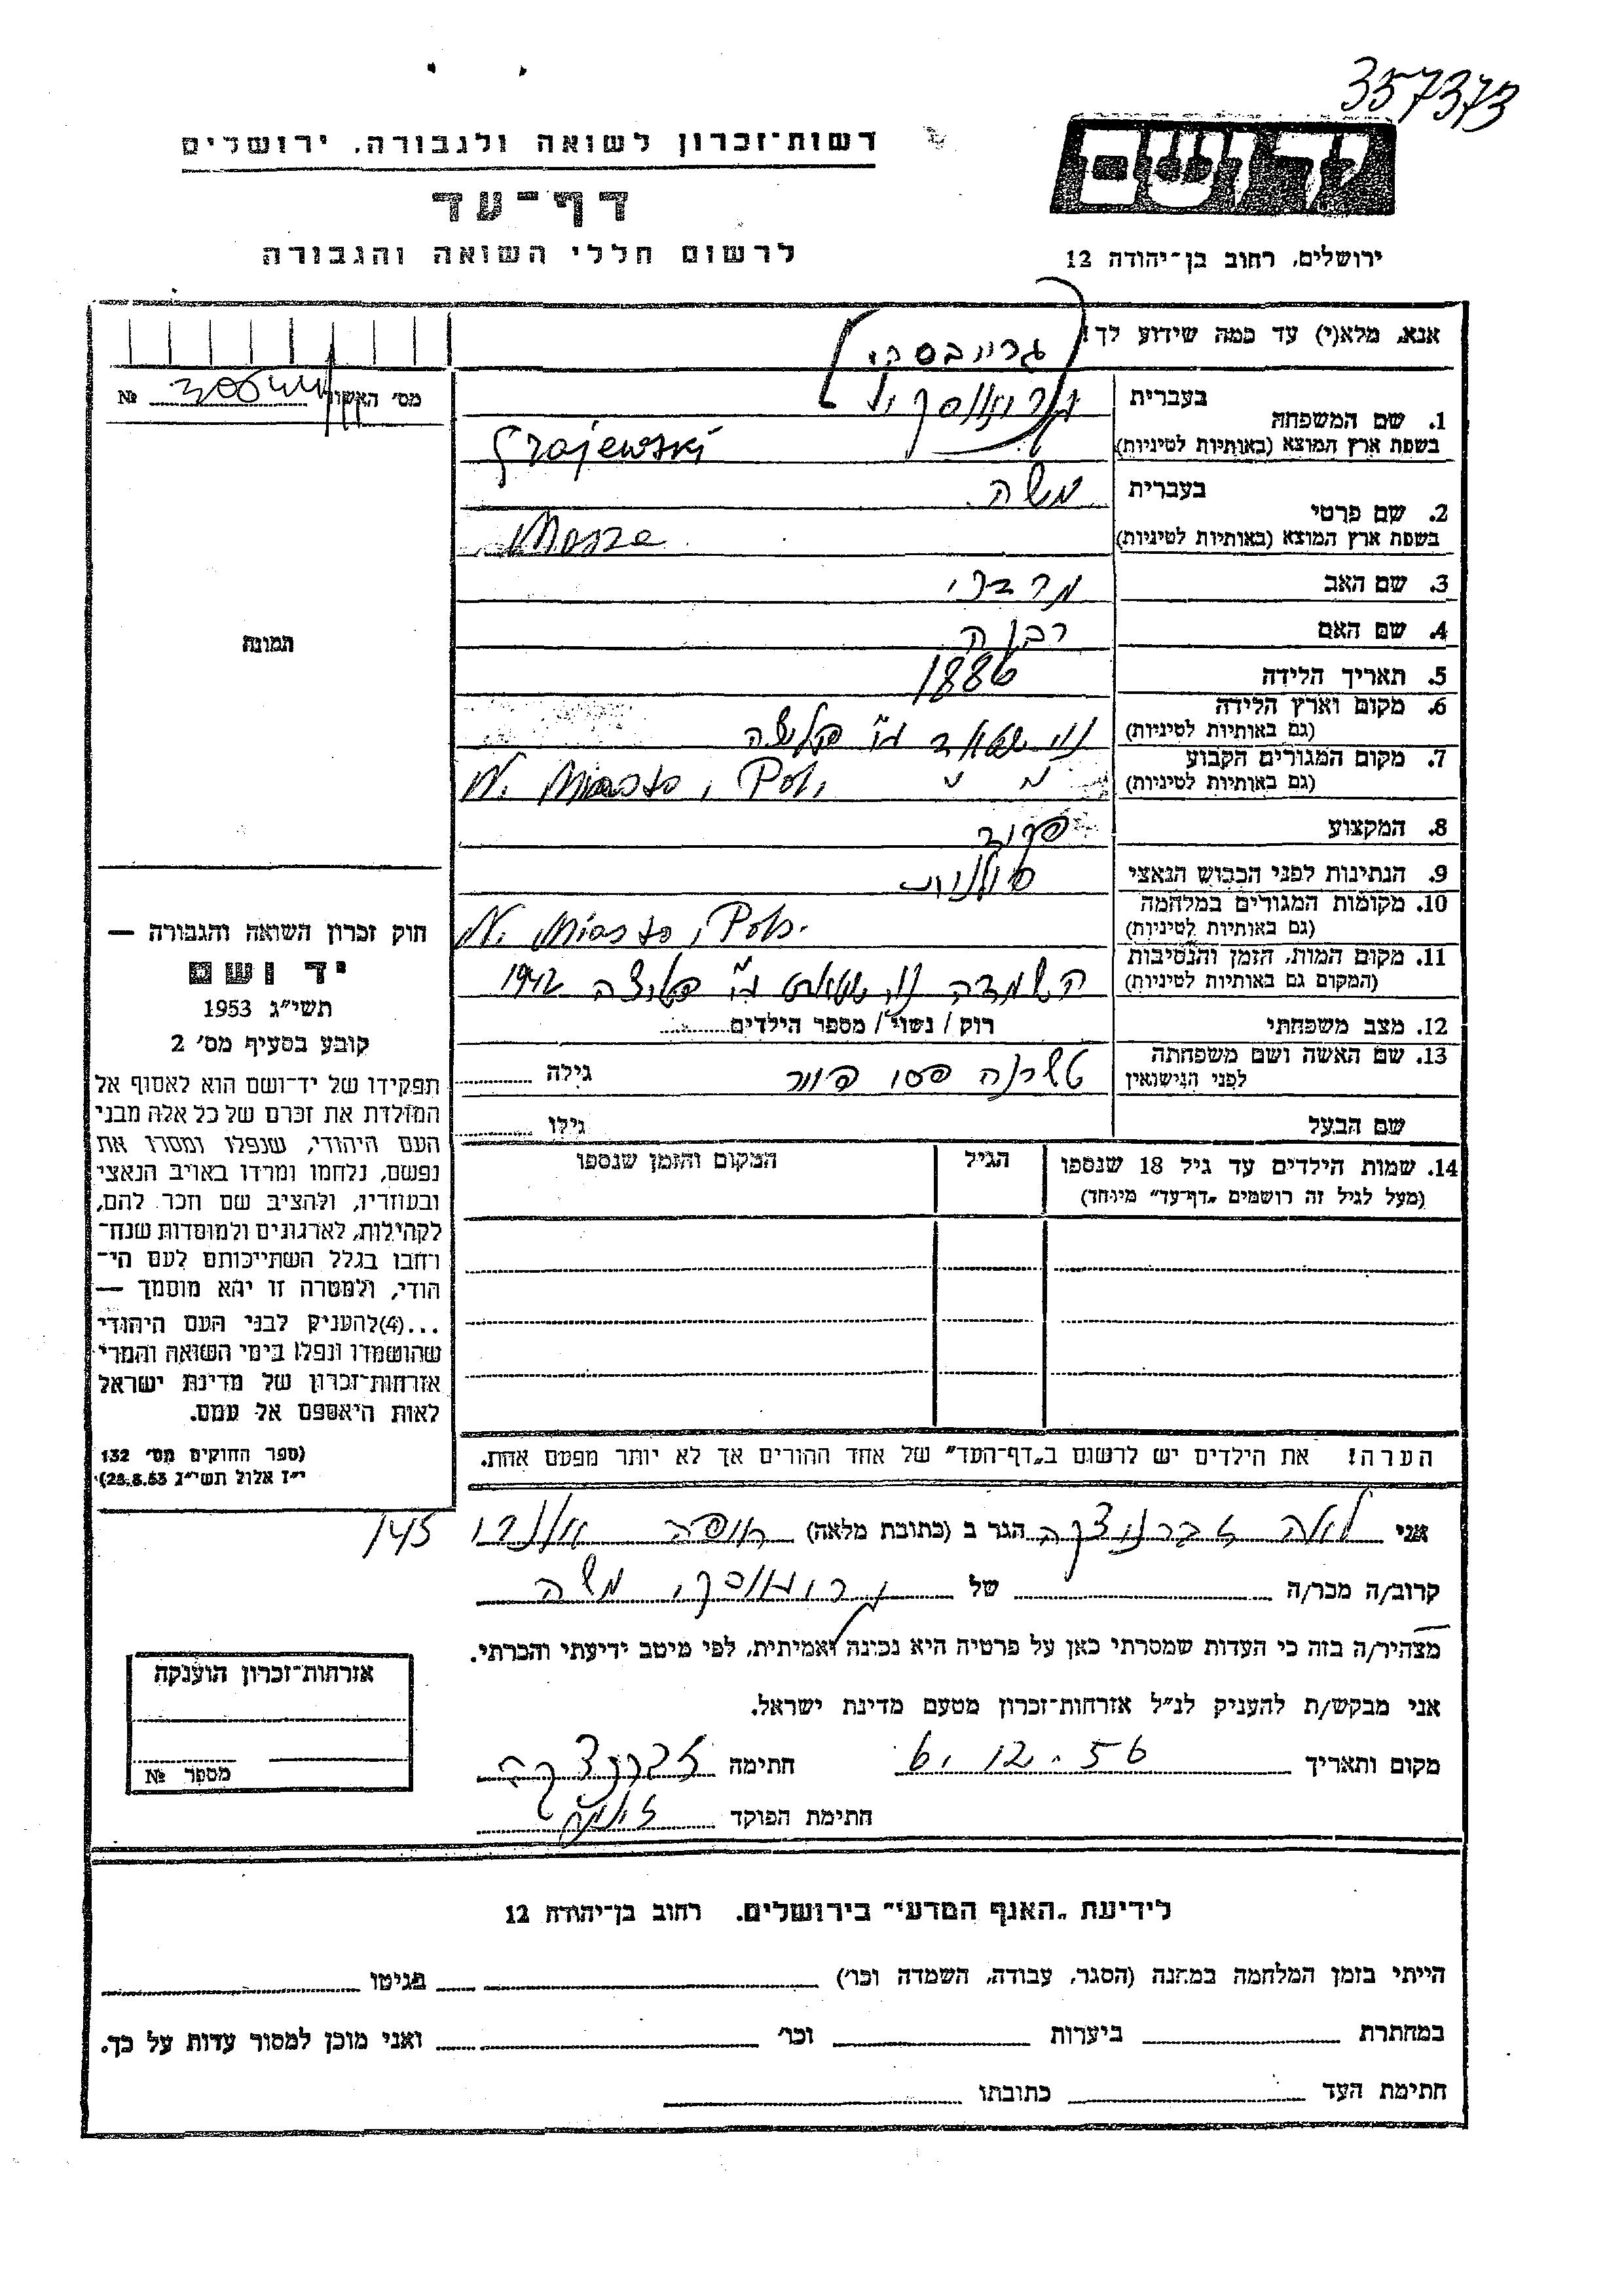 357373
רשות־זכרון לשואה ולגבורה. ירושלים
דף־עד
לרשום חללי השואה והגבורה
יד ושם
ירושלים, רחוב בן־יהודה 12
אנא, מלא(י) עד כמה שידוע לך!
גרייבסקי
מס׳ האשור
№
1. שם המשפחה
בעברית
בשפת ארץ המוצא (באותיות לטיניות)
Grajewski
2. שם פרטי
בעברית
משה
בשפת ארץ המוצא (באותיות לטיניות)
3. שם האב
מרדכי
4. שם האם
5. תאריך הלידה
1886
6. מקום וארץ הלידה
(גם באותיות לטיניות)
7. מקום המגורים הקבוע
(גם באותיות לטיניות)
N. Miasto, Pol.
8. המקצוע
9. הנתינות לפני הכבוש הנאצי
פולנית
10. מקומות המגורים במלחמה
(גם באותיות לטיניות)
N. Miasto, Pol.
11. מקום המות, הזמן והנסיבות
(המקום גם באותיות לטיניות)
השמדה 1942
12. מצב משפחתי
רוק / נשוי / מספר הילדים
13. שם האשה ושם משפחתה
לפני הנישואין
גילה
שם הבעל
גילו
14. שמות הילדים עד גיל 18 שנספו
(מעל לגיל זה רושמים „דף־עד״ מיוחד)
הגיל
המקום והזמן שנספו
הערה! את הילדים יש לרשום ב„דף־העד״ של אחד ההורים אך לא יותר מפעם אחת.
תמונה
חוק זכרון השואה והגבורה —
יד ושם
תשי״ג 1953
קובע בסעיף מס׳ 2
תפקידו של יד־ושם הוא לאסוף אל
המולדת את זכרם של כל אלה מבני
העם היהודי, שנפלו ומסרו את
נפשם, נלחמו ומרדו באויב הנאצי
ובעוזריו, ולהציב שם וזכר להם,
לקהילות, לארגונים ולמוסדות שנח־
רבו בגלל השתייכותם לעם הי־
הודי, ולמטרה זו יהא מוסמך —
...(4)להעניק לבני העם היהודי
שהושמדו ונפלו בימי השואה והמרי
אזרחות־זכרון של מדינת ישראל
לאות היאספם אל עמם.
(ספר החוקים מס׳ 132
י״ז אלול תשי״ג 28.8.53)
אני לאה הגר ב (כתובת מלאה) חיפה 145
קרוב/ה מכר/ה של משה
מצהיר/ה בזה כי העדות שמסרתי כאן על פרטיה היא נכונה ואמיתית, לפי מיטב ידיעתי והכרתי.
אני מבקש/ת להעניק לנ״ל אזרחות־זכרון מטעם מדינת ישראל.
מקום ותאריך 6.12.56 חתימה
חתימת הפוקד
אזרחות־זכרון הוענקה
מספר №
לידיעת „האגף המדעי״ בירושלים. רחוב בן־יהודה 12
הייתי בזמן המלחמה במחנה (הסגר, עבודה, השמדה וכר׳) בגיטו
במחתרת ביערות וכר׳ ואני מוכן למסור עדות על כך.
חתימת העד כתובתו